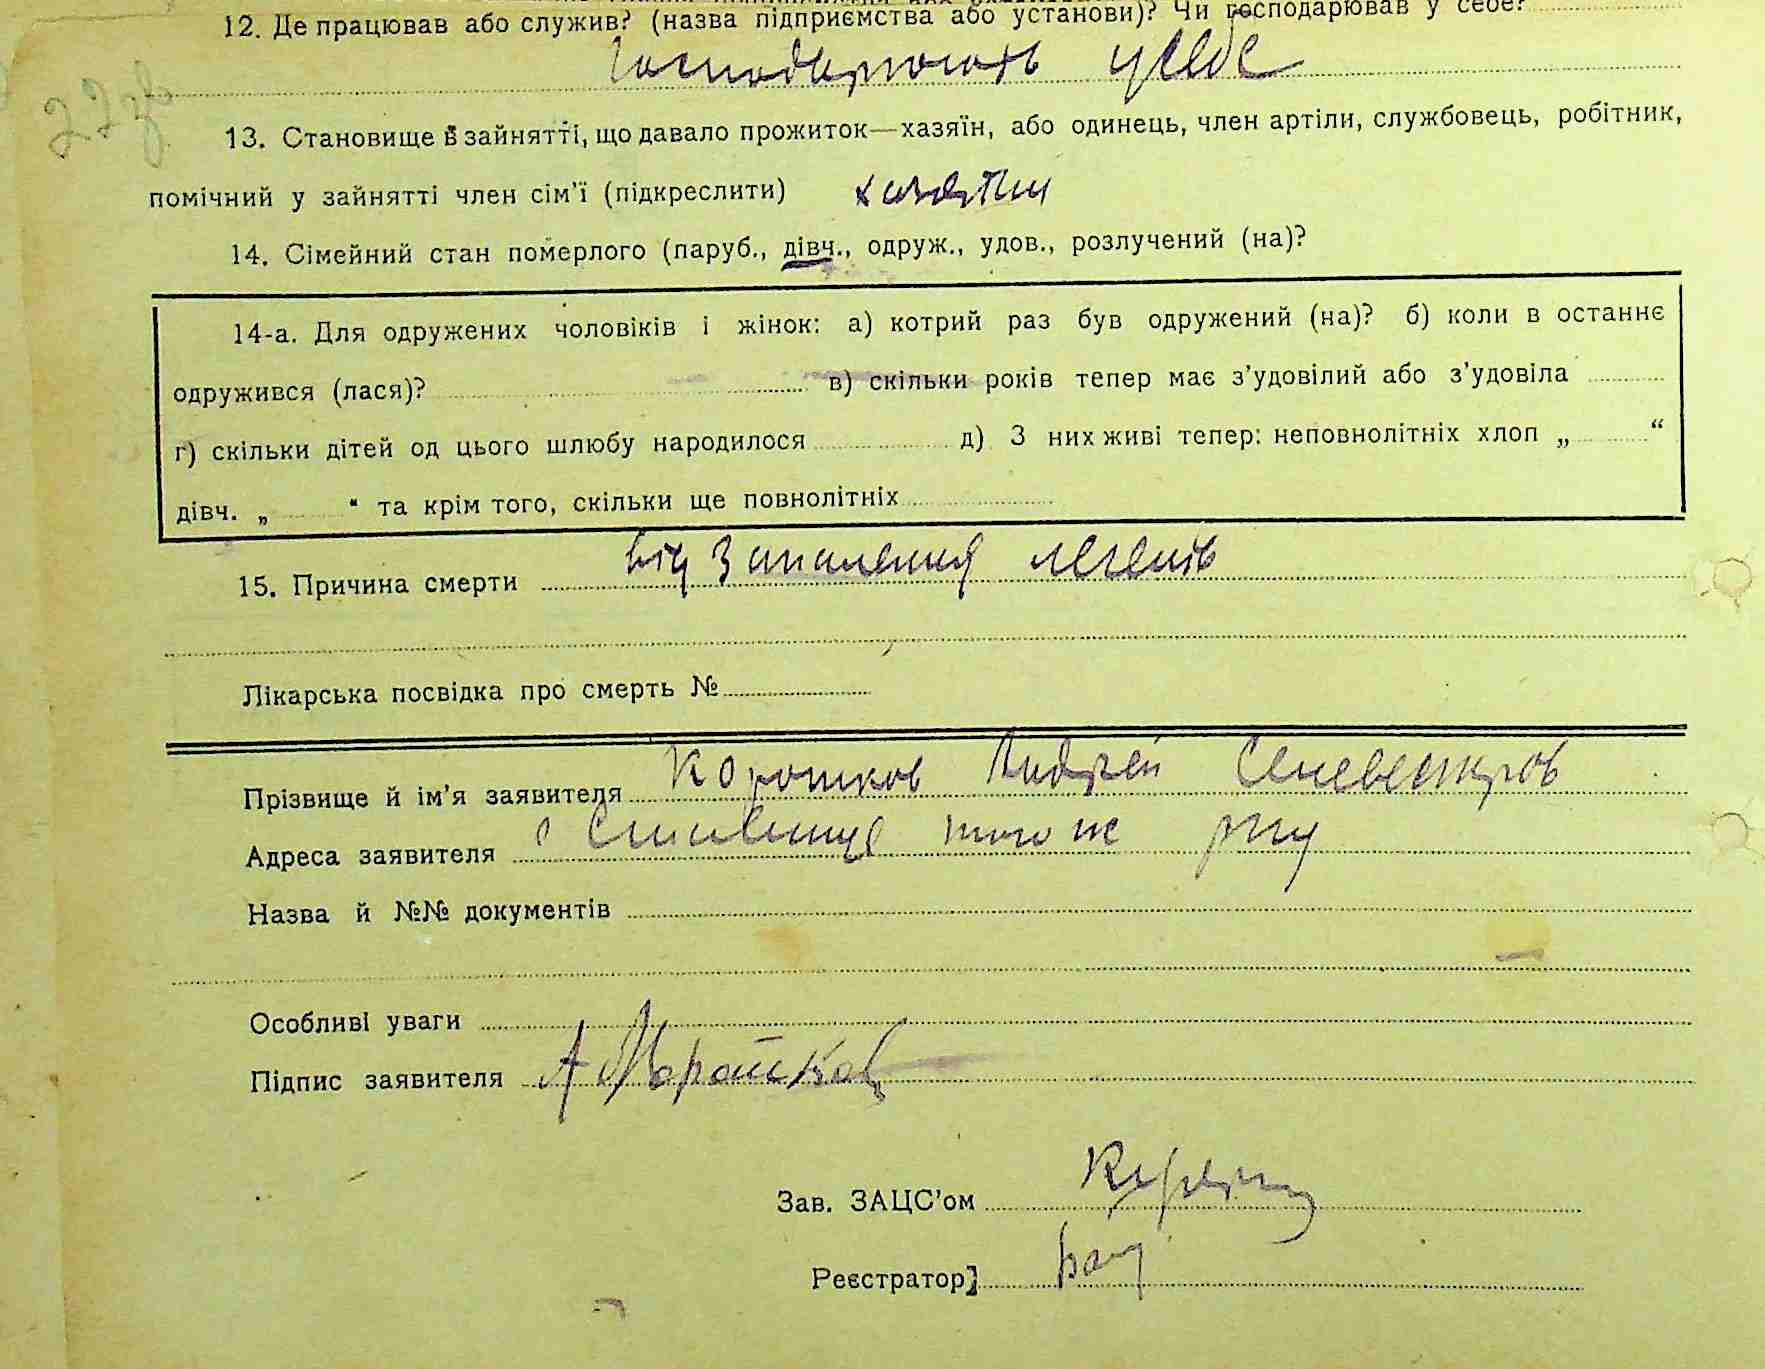 12. Де працював або служив? (назва підприємства або установи)? Чи господарював у себе?
Господарюють у себе
22 зв
13. Становище в зайнятті, що давало прожиток—хазяїн, або одинець, член артіли, службовець, робітник,
помічний у зайнятті член сім'ї (підкреслити) хазяїн
14. Сімейний стан померлого (паруб., дівч., одруж., удов., розлучений (на)?
14-а. Для одружених чоловіків і жінок: а) котрий раз був одружений (на)? б) коли в останнє
одружився (лася)? в) скільки років тепер має з'удовілий або з'удовіла
г) скільки дітей од цього шлюбу народилося д) З них живі тепер: неповнолітніх хлоп „ “
дівч. „ “ та крім того, скільки ще повнолітніх
15. Причина смерти від запалення легенів
Лікарська посвідка про смерть №
Прізвище й ім'я заявителя Коротков Андрей
Адреса заявителя с того ж р-ну
Назва й №№ документів
Особливі уваги
Підпис заявителя А
Зав. ЗАЦС'ом
Реєстратор